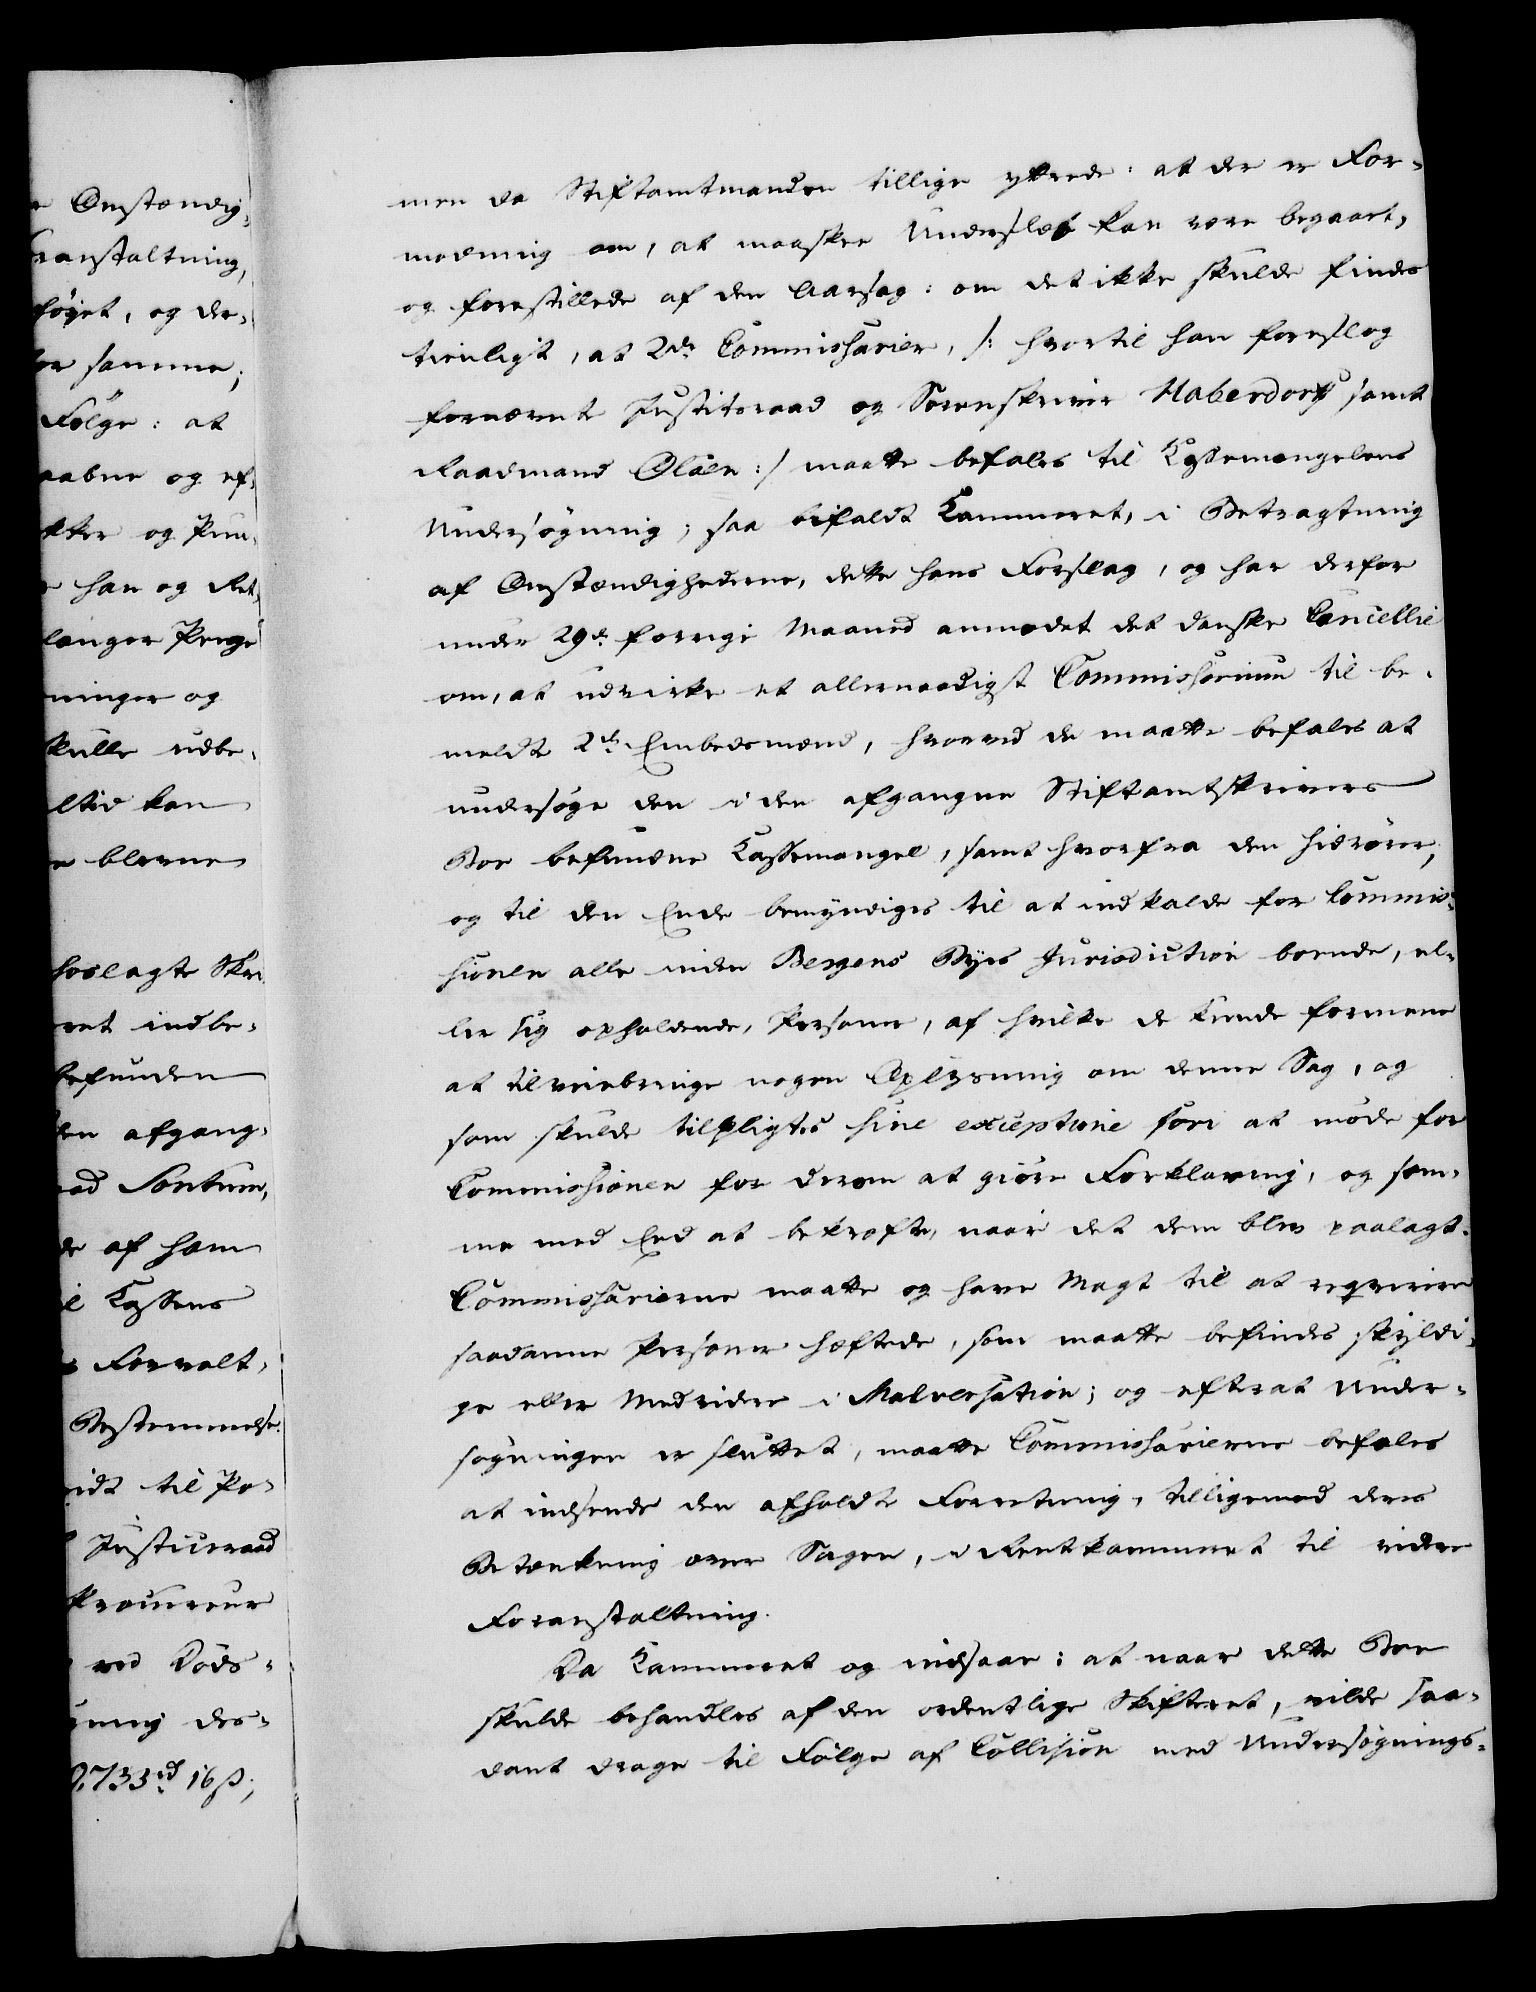 e Omstændig-
ranstaltning,
föiet, og der-
for samme;
Fölge: at
aabne og ef-
kker og Pun-
e han og Ret-
længer Penge
ninger og
kulle udbe-
ltid kan
e blevne
hoslagte Skri-
ret indbe-
befunden
den afgang-
aad Sontum,
de af ham
il Kassens
s Forvalt-
Bestemmelse.
idt til Po-
Justitsraad
Procureur
ved Döds-
ning des-
0,733 rd 16 ß;
men da Stiftamtmanden tillige yttrede: at der er For-
modning om, at maaskee Underslæb kan være begaaet,
og forestillede af den Aarsag: om det ikke skulde findes
tienligt, at 2de Commissarier, /: hvortil han foreslog
fornævnte Justitsraad og Sorenskriver Haberdorff samt
Raadmand Olsen :/ maatte befales til Kassemangelens
Undersögning; saa bifaldt Kammeret, i Betragtning
af Omstændighederne, dette hans Forslag, og har derfor
under 29de forrige Maaned anmodet det danske Cancellie
om, at udvirke et allernaadigst Commissorium til be-
meldte 2de Embedsmænd, hvorved de maatte befales at
undersöge den i den afgangne Stiftamtskrivers
Boe befundne Kassemangel, samt hvorfra den hidrörer;
og til den Ende bemyndiges til at indkalde for Commis-
sionen alle inden Bergens Byes Jurisdiction boende, el-
ler sig opholdende, Personer, af hvilke de kunde formene
at tilveiebringe nogen Oplysning om denne Sag, og
som skulde tilpligtes sine exceptione fori at möde for
Commissionen for derom at giöre Forklaring, og sam-
me med Eed at bekræfte, naar det dem blev paalagt.
Commissarierne maatte og have Magt til at reqvirere
saadanne Personer hæftede, som maatte befindes skyldi-
ge eller Medvidere i Malversation; og efterat Under-
sögningen er sluttet, maatte Commissarierne befales
at indsende den afholdte Forretning, tilligemed deres
Betænkning over Sagen, i Rentekammeret til videre
Foranstaltning.
Da Kammeret og indsaae: at naar dette Boe
skulde behandles af den ordentlige Skifteret, vilde saa-
dant drage til Fölge af Collision med Undersögnings-